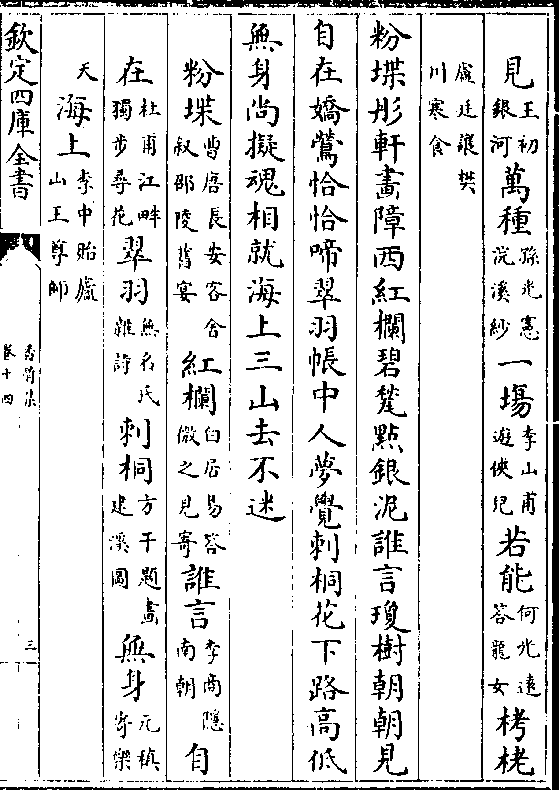 見王初銀河萬種孫光憲浣溪紗一塲李山甫遊俠兒若能何光遠答龍女栲栳
盧廷讓樊川寒食
粉堞彤軒畫障西紅欄碧甃點銀泥誰言瓊樹朝朝見
自在嬌鶯恰恰啼翠羽帳中人夢覺刺桐花下路高低
無身尚擬魂相就海上三山去不迷
粉堞曹唐長安客舍叙邵陵舊宴紅欄白居易答微之見寄誰言李商隱南朝自
在杜甫江畔獨步尋花翠羽無名氏雜詩刺桐方干題畫建溪圖無身元稹寄樂
天海上李中貽廬山王尊師
欽定四庫全書
香屑集
卷十四
三